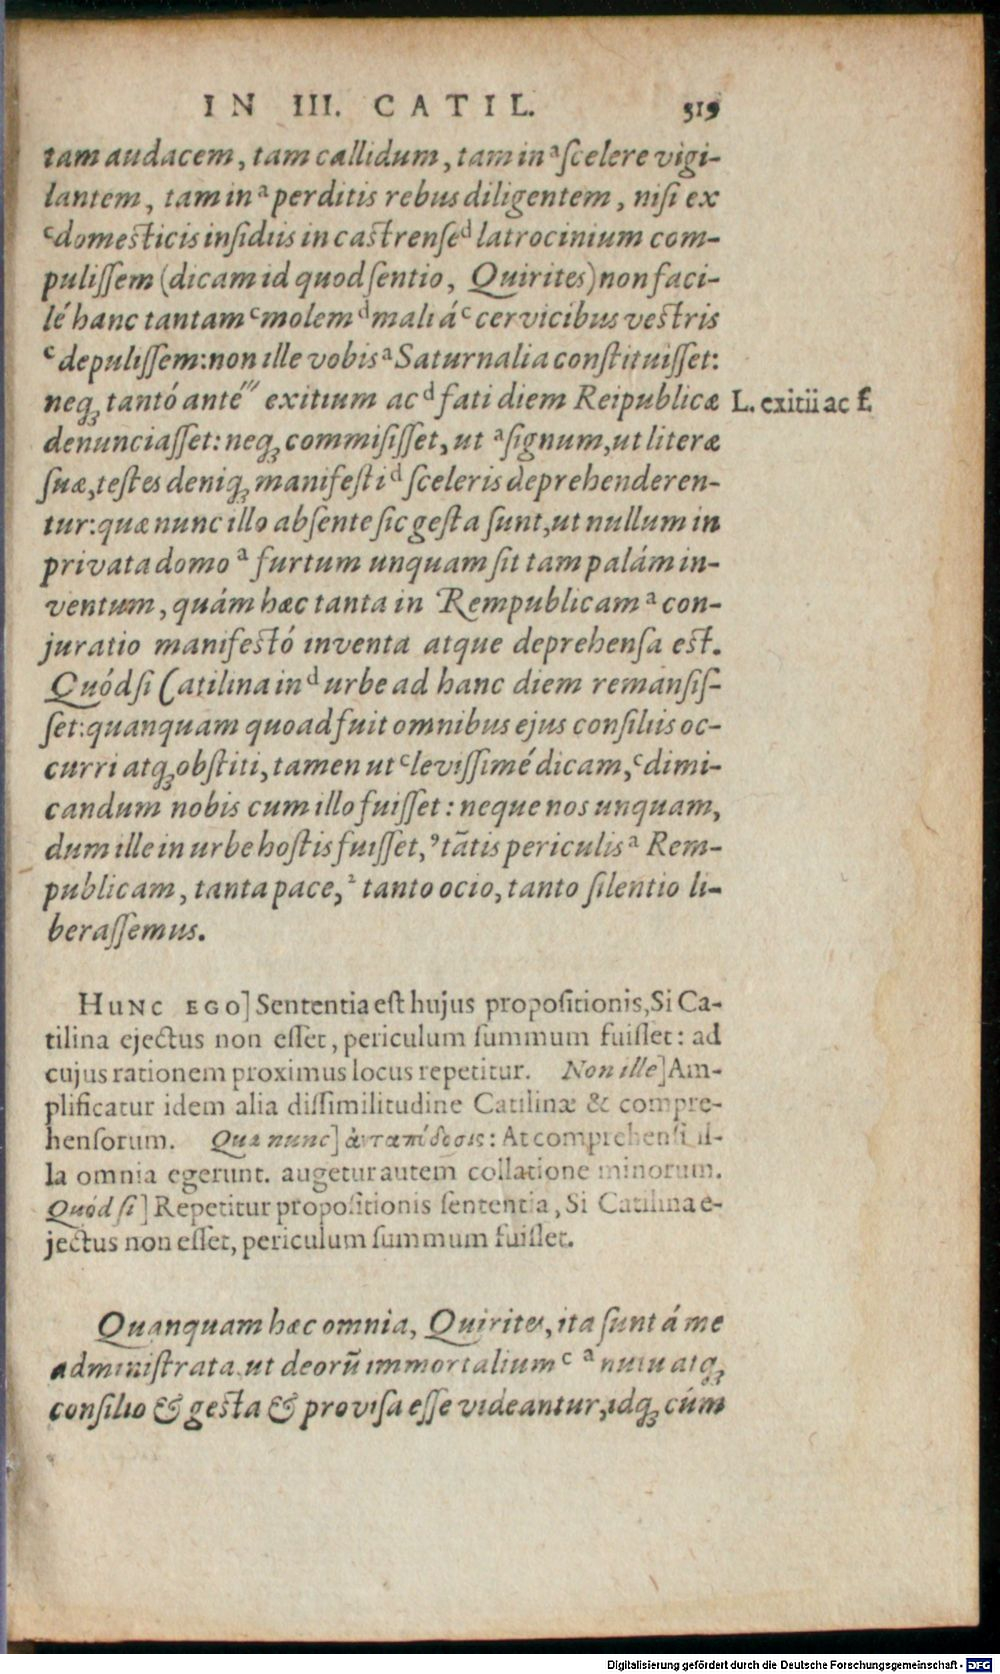 IN III. CATIL. 519
tam audacem, tam callidum, tam in ᵃ scelere vigi-
lantem, tam in ᵃ perditis rebus diligentem, nisi ex
ᶜ domesticis insidiis in castrense ᵈ latrocinium com-
pulissem (dicam id quod sentio, Quirites) non faci-
lé hanc tantam ᶜ molem ᵈ mali á ᶜ cervicibus vestris
ᶜ depulissem: non ille vobis ᵃ Saturnalia constituisset:
neq́ꝫ tantó anté''' exitium ac ᵈ fati diem Reipublicæ L. exitii ac f.
denunciasset: neqꝫ commisisset, ut ᵃ signum, ut literæ
suæ, testes deniqꝫ manifesti ᵈ sceleris deprehenderen-
tur: quæ nunc illo absente sic gesta sunt, ut nullum in
privata domo ᵃ furtum unquam sit tam palám in-
ventum, quám hæc tanta in Rempublicam ᵃ con-
juratio manifestó inventa atque deprehensa est.
Quódsi Catilina in ᵈ urbe ad hanc diem remansis-
set: quanquam quoad fuit omnibus ejus consiliis oc-
curri atqꝫ obstiti, tamen ut ᶜ levissimé dicam, ᶜ dimi-
candum nobis cum illo fuisset: neque nos unquam,
dum ille in urbe hostis fuisset, ⁹ tātis periculis ᵃ Rem-
publicam, tanta pace, ² tanto ocio, tanto silentio li-
berassemus.
HUNC EGO] Sententia est hujus propositionis, Si Ca-
tilina ejectus non esset, periculum summum fuisset: ad
cujus rationem proximus locus repetitur. Non ille] Am-
plificatur idem alia dissimilitudine Catilinæ & compre-
hensorum. Quæ nunc] ἀνταπόδοσις: At comprehensi il-
la omnia egerunt. augetur autem collatione minorum.
Quód si] Repetitur propositionis sententia, Si Catilina e-
jectus non esset, periculum summum fuisset.
Quanquam hæc omnia, Quirites, ita sunt á me
administrata, ut deorū immortalium ᶜ ᵃ nutu atqꝫ
consilio & gesta & provisa esse videantur, idqꝫ cúm
Digitalisierung gefördert durch die Deutsche Forschungsgemeinschaft - DFG